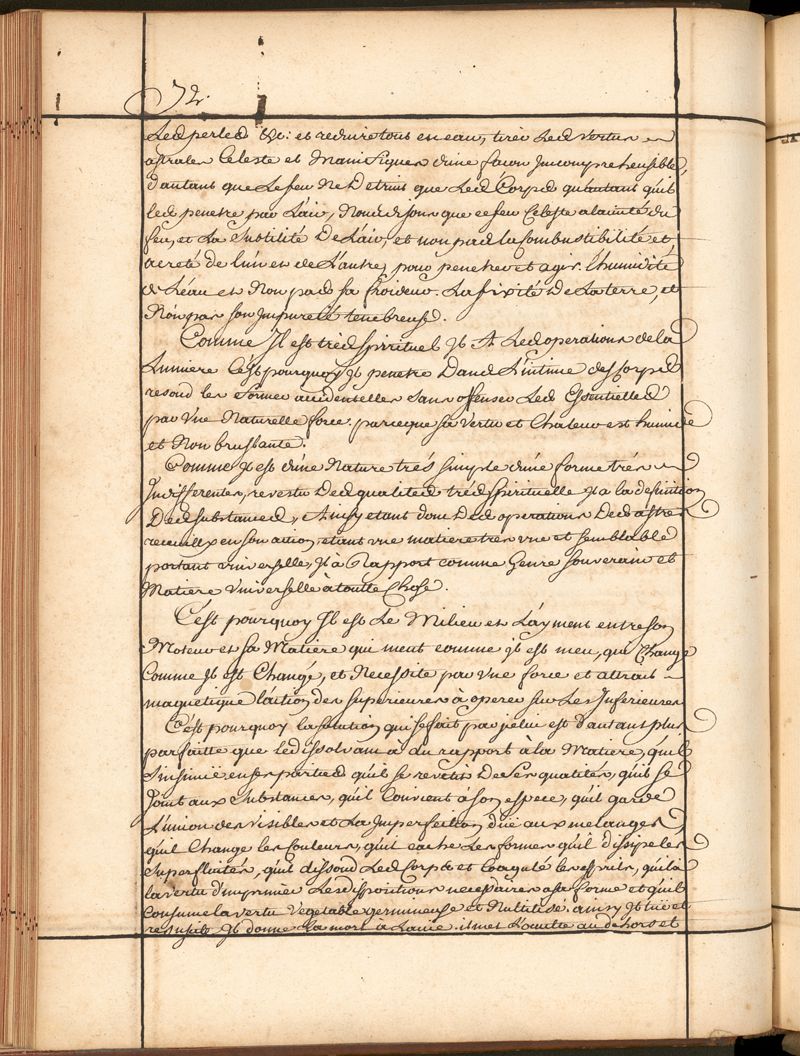 72.
Les perles &c: et reduire tout en eau, tirer Les vertus
astrales Celeste et Magnifiques d'une façon Incomprehensible,
d'autant que Le feu Ne Detruit que Les Corps qu'autant qu'il
les penetre par L'air, Nous disons que ce feu Celeste a la unité du
feu, et La Subtilité De L'air, et non pas la Combustibilité et
acreté de l'un en de L'autre, pour penetrer et agir. l'humidité
de L'eau et Non pas sa froideur. La fixité De La terre, et
Non pas son Impureté tenebreuse.
Comme Il est tres spirituel Il A Les operations de la
Lumiere C'est pourquoy Il penetre Dans L'intime des Corps
resoud les formes accidentelles sans offenser Les Essentielles
par Une Naturelle force. parceque sa vertu et Chaleur est humide
et Non bruslante.
Comme Il est d'une Nature trés simple d'une forme trés
Indifferente, revestu Des qualites tres spirituelle Il a la definition
Des substances, Ainsy etant donc Des operations Des astres
recueilly en son action, etant une matiere tres une et semblable
portant universelle, Il à Rapport comme Genre souverain et
Matiere Universelle à toutte Chose.
C'est pourquoy Il est Le Milieu et L'ayment entre son
Moteur et sa Matiere qui meut comme Il est meu, qui Change
Comme Il est Changé, et Necessite par Une force et attrait
magnetique l'action des superieures à operer sur Les Inferieures
C'est pourquoy la solution qui se fait par jcelui est D'autans plus
parfaitte que Le dissolvant à du rapport à la Matiere, qu'il
s'insinuë en ses parties qu'il se revetit De ses qualités, qu'il se
Joint aux substances, qu'il Convient à son espece, qu'il garde
L'union des visibles et La Imperfection düe aux melanges,
qu'il Change les Couleurs, qu'il cache Les formes qu'il dissipe les
superfluités, qu'il dissoud Les Corps et Coagule les esprits, qu'il a
la vertu d'imprimer Les dispositions necessaires a sa forme et qu'il
Consume la vertu Vegetable germineuse et Nutilisé. ainsy Il tüe et
resuscite Il donne La mort à La vie. il met L'occulte au dehors et